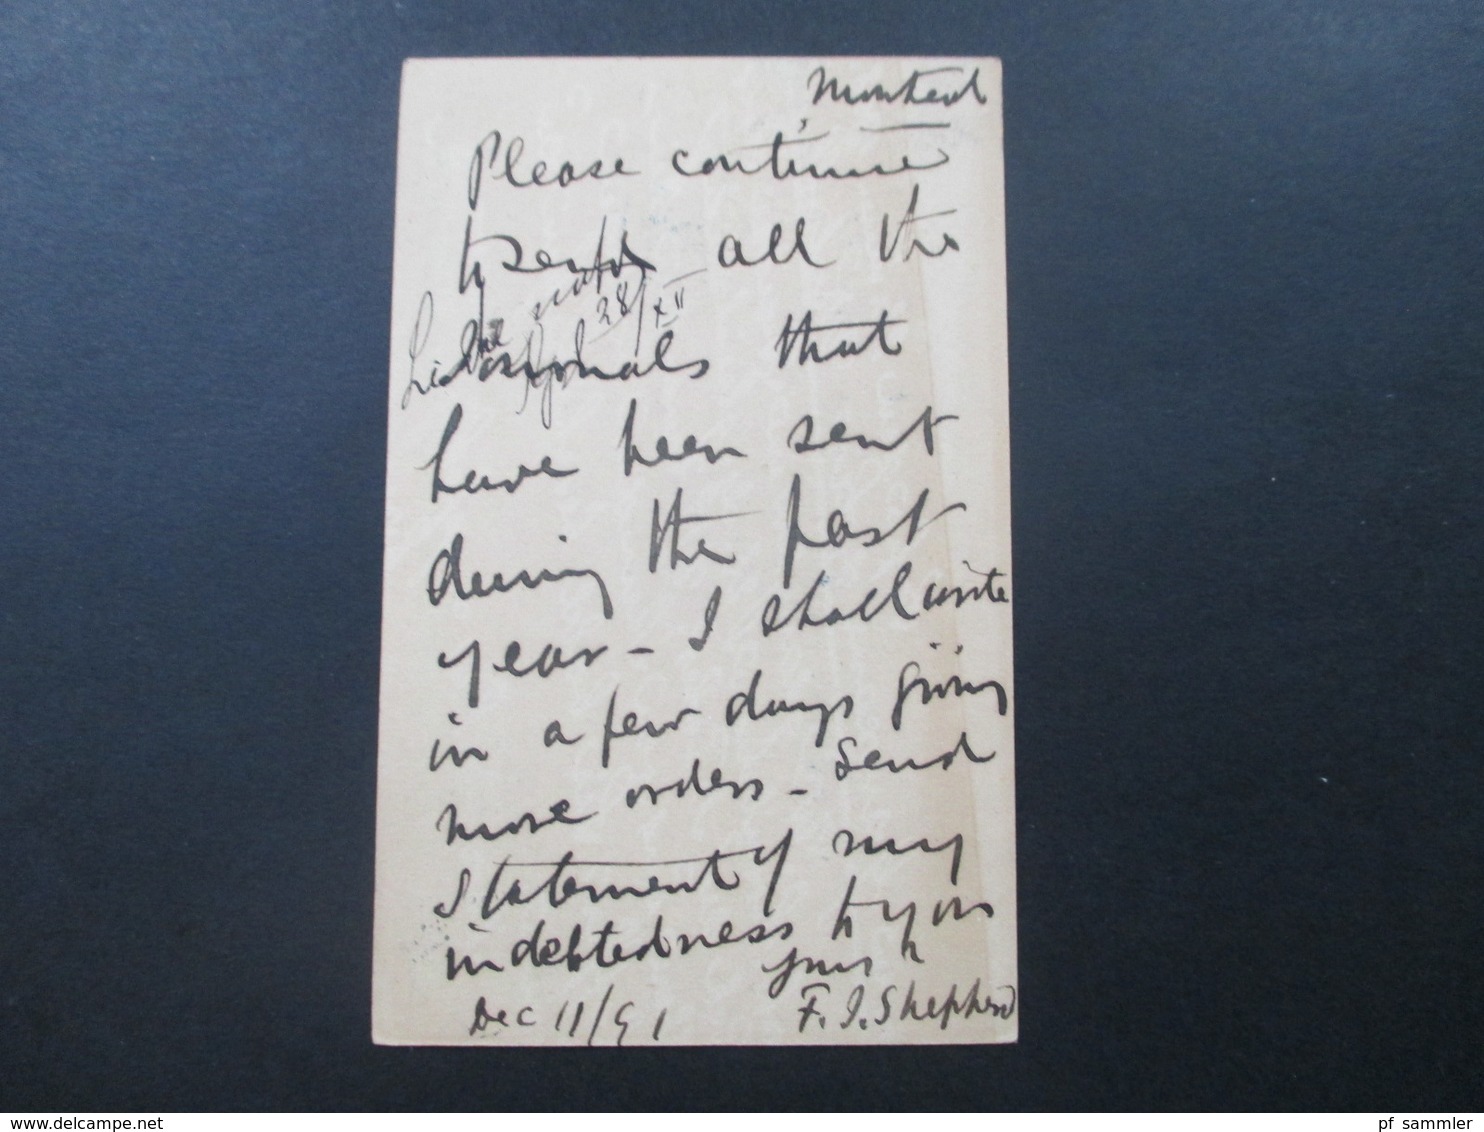 Montreal
Please continue
to send all the
28/XII
Journals that
have been sent
during the past
year - I shall write
in a few days giving
more orders - send
statement of my
indebtedness to you
yours
Dec 11/91 F. J. Shepherd
pf sammler